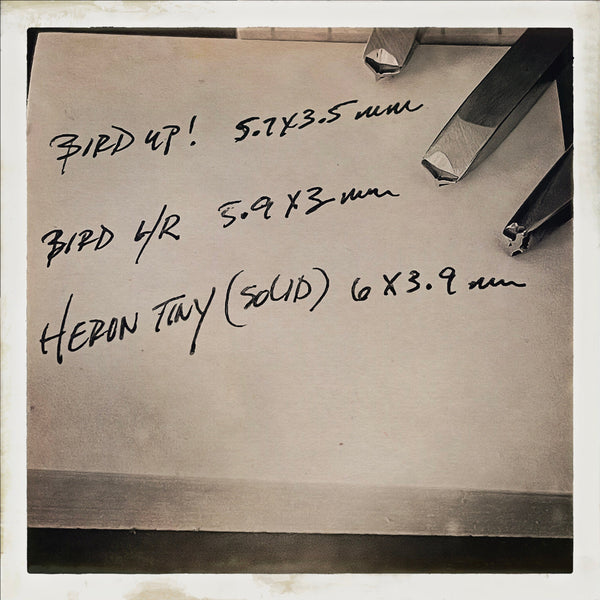 BIRD UP! 5.7X3.5mm
BIRD L/R 5.9X3mm
HERON TINY (SOLID) 6X3.9mm